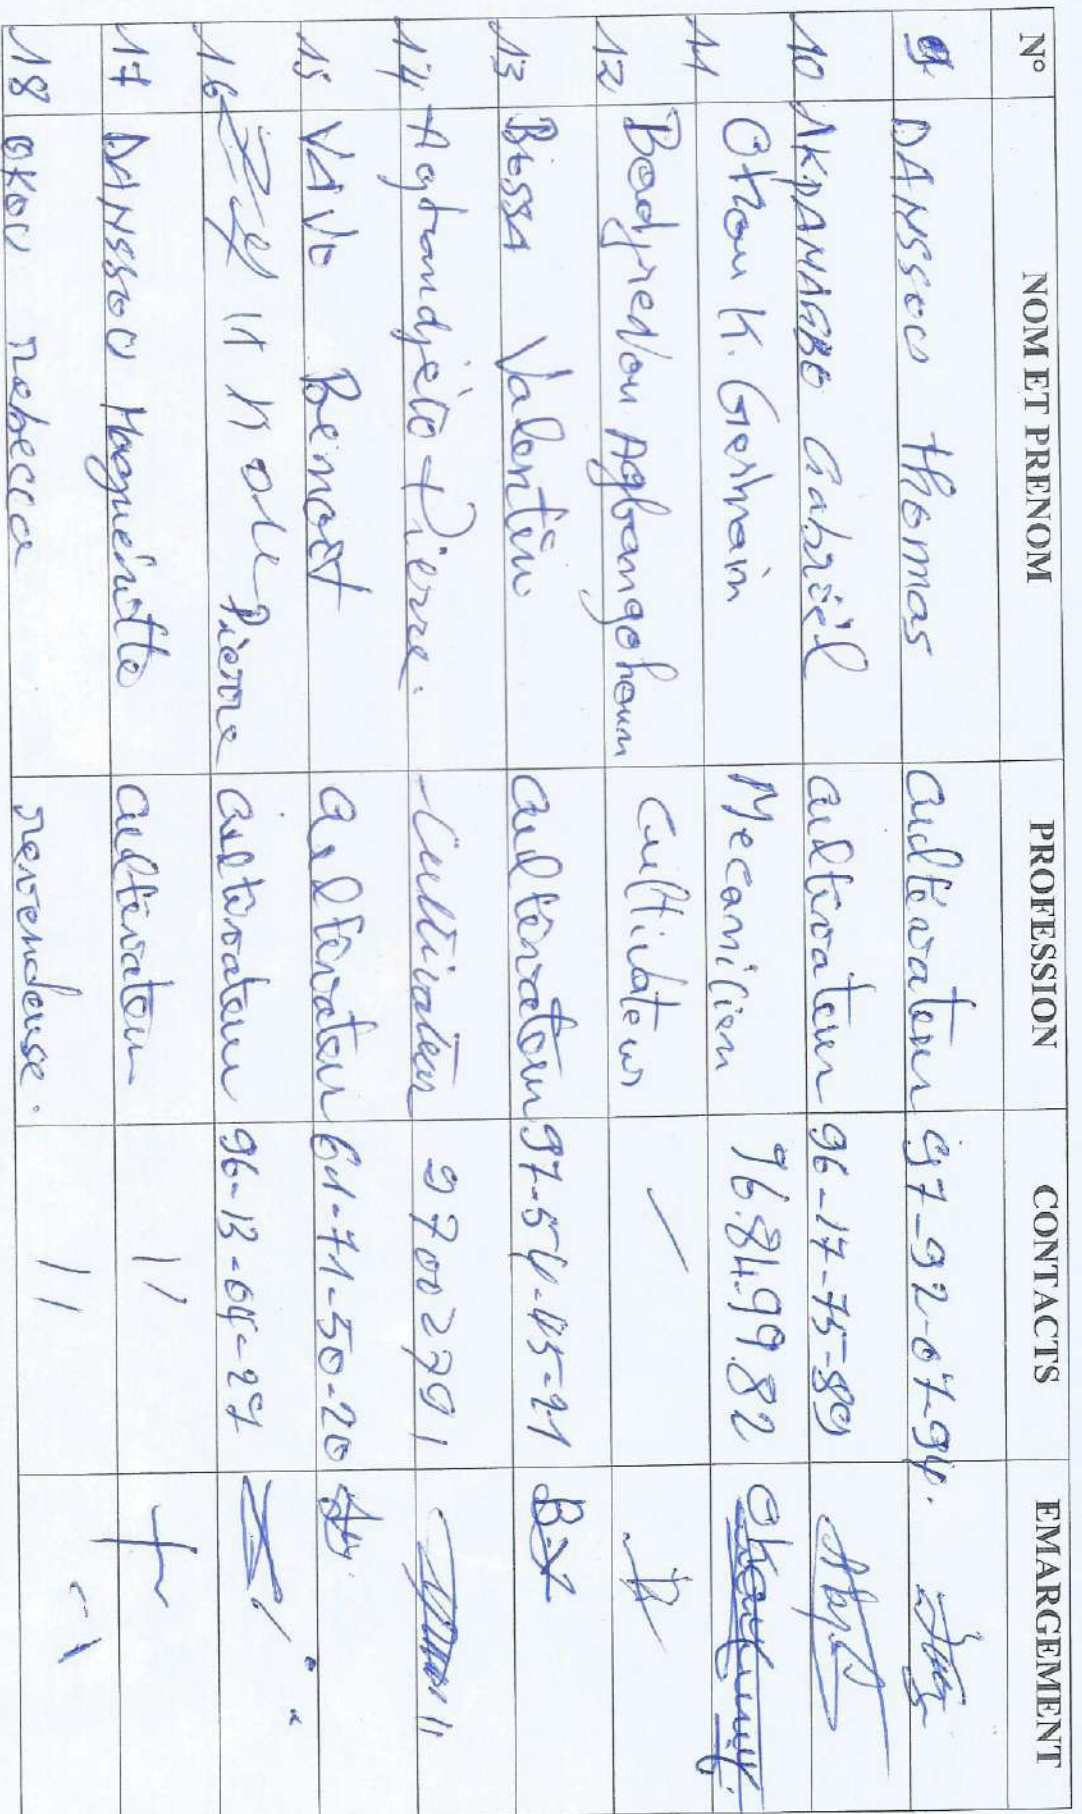 N° NOM ET PRENOM PROFESSION CONTACTS EMARGEMENT
9 DANSSOU Thomas cultivateur 97-92-07-94.
10 AKPANAGBO Gabriël cultivateur 96-17-75-89
11 Okou K. Germain Mecanicien 96.84.99.82
12 Agbangohoun Cultivateur /
13 BOSSA Valentin cultivateur 97-54-45-21
14 Pierre. Cultivateur 97002791
15 VAVO Benoit cultivateur 61-71-50-20
16 Pierre cultivateur 96-13-04-27
17 DANSSOU Marguéritte cultivateur //
18 OKOU rebecca revendeuse. //